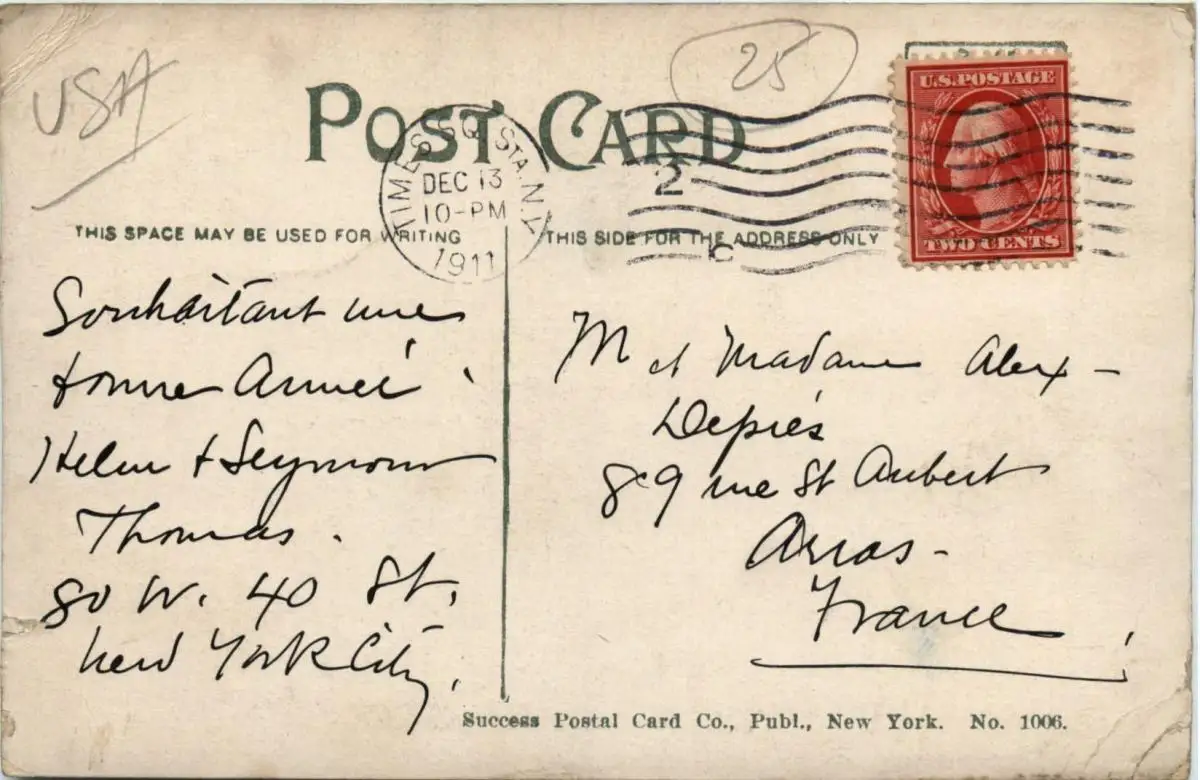 USA
25
POST CARD
TIMES SQ. STA. N.Y.
DEC 13
10-PM
1911
2
C
U.S. POSTAGE
TWO CENTS
THIS SPACE MAY BE USED FOR WRITING
THIS SIDE FOR THE ADDRESS ONLY
Souhaitant une
bonne Année
Helen + Seymour
Thomas.
80 W. 40 St.
New York City.
M et Madame Alex -
Depiés
89 rue St Aubert
Arras -
France
Success Postal Card Co., Publ., New York. No. 1006.